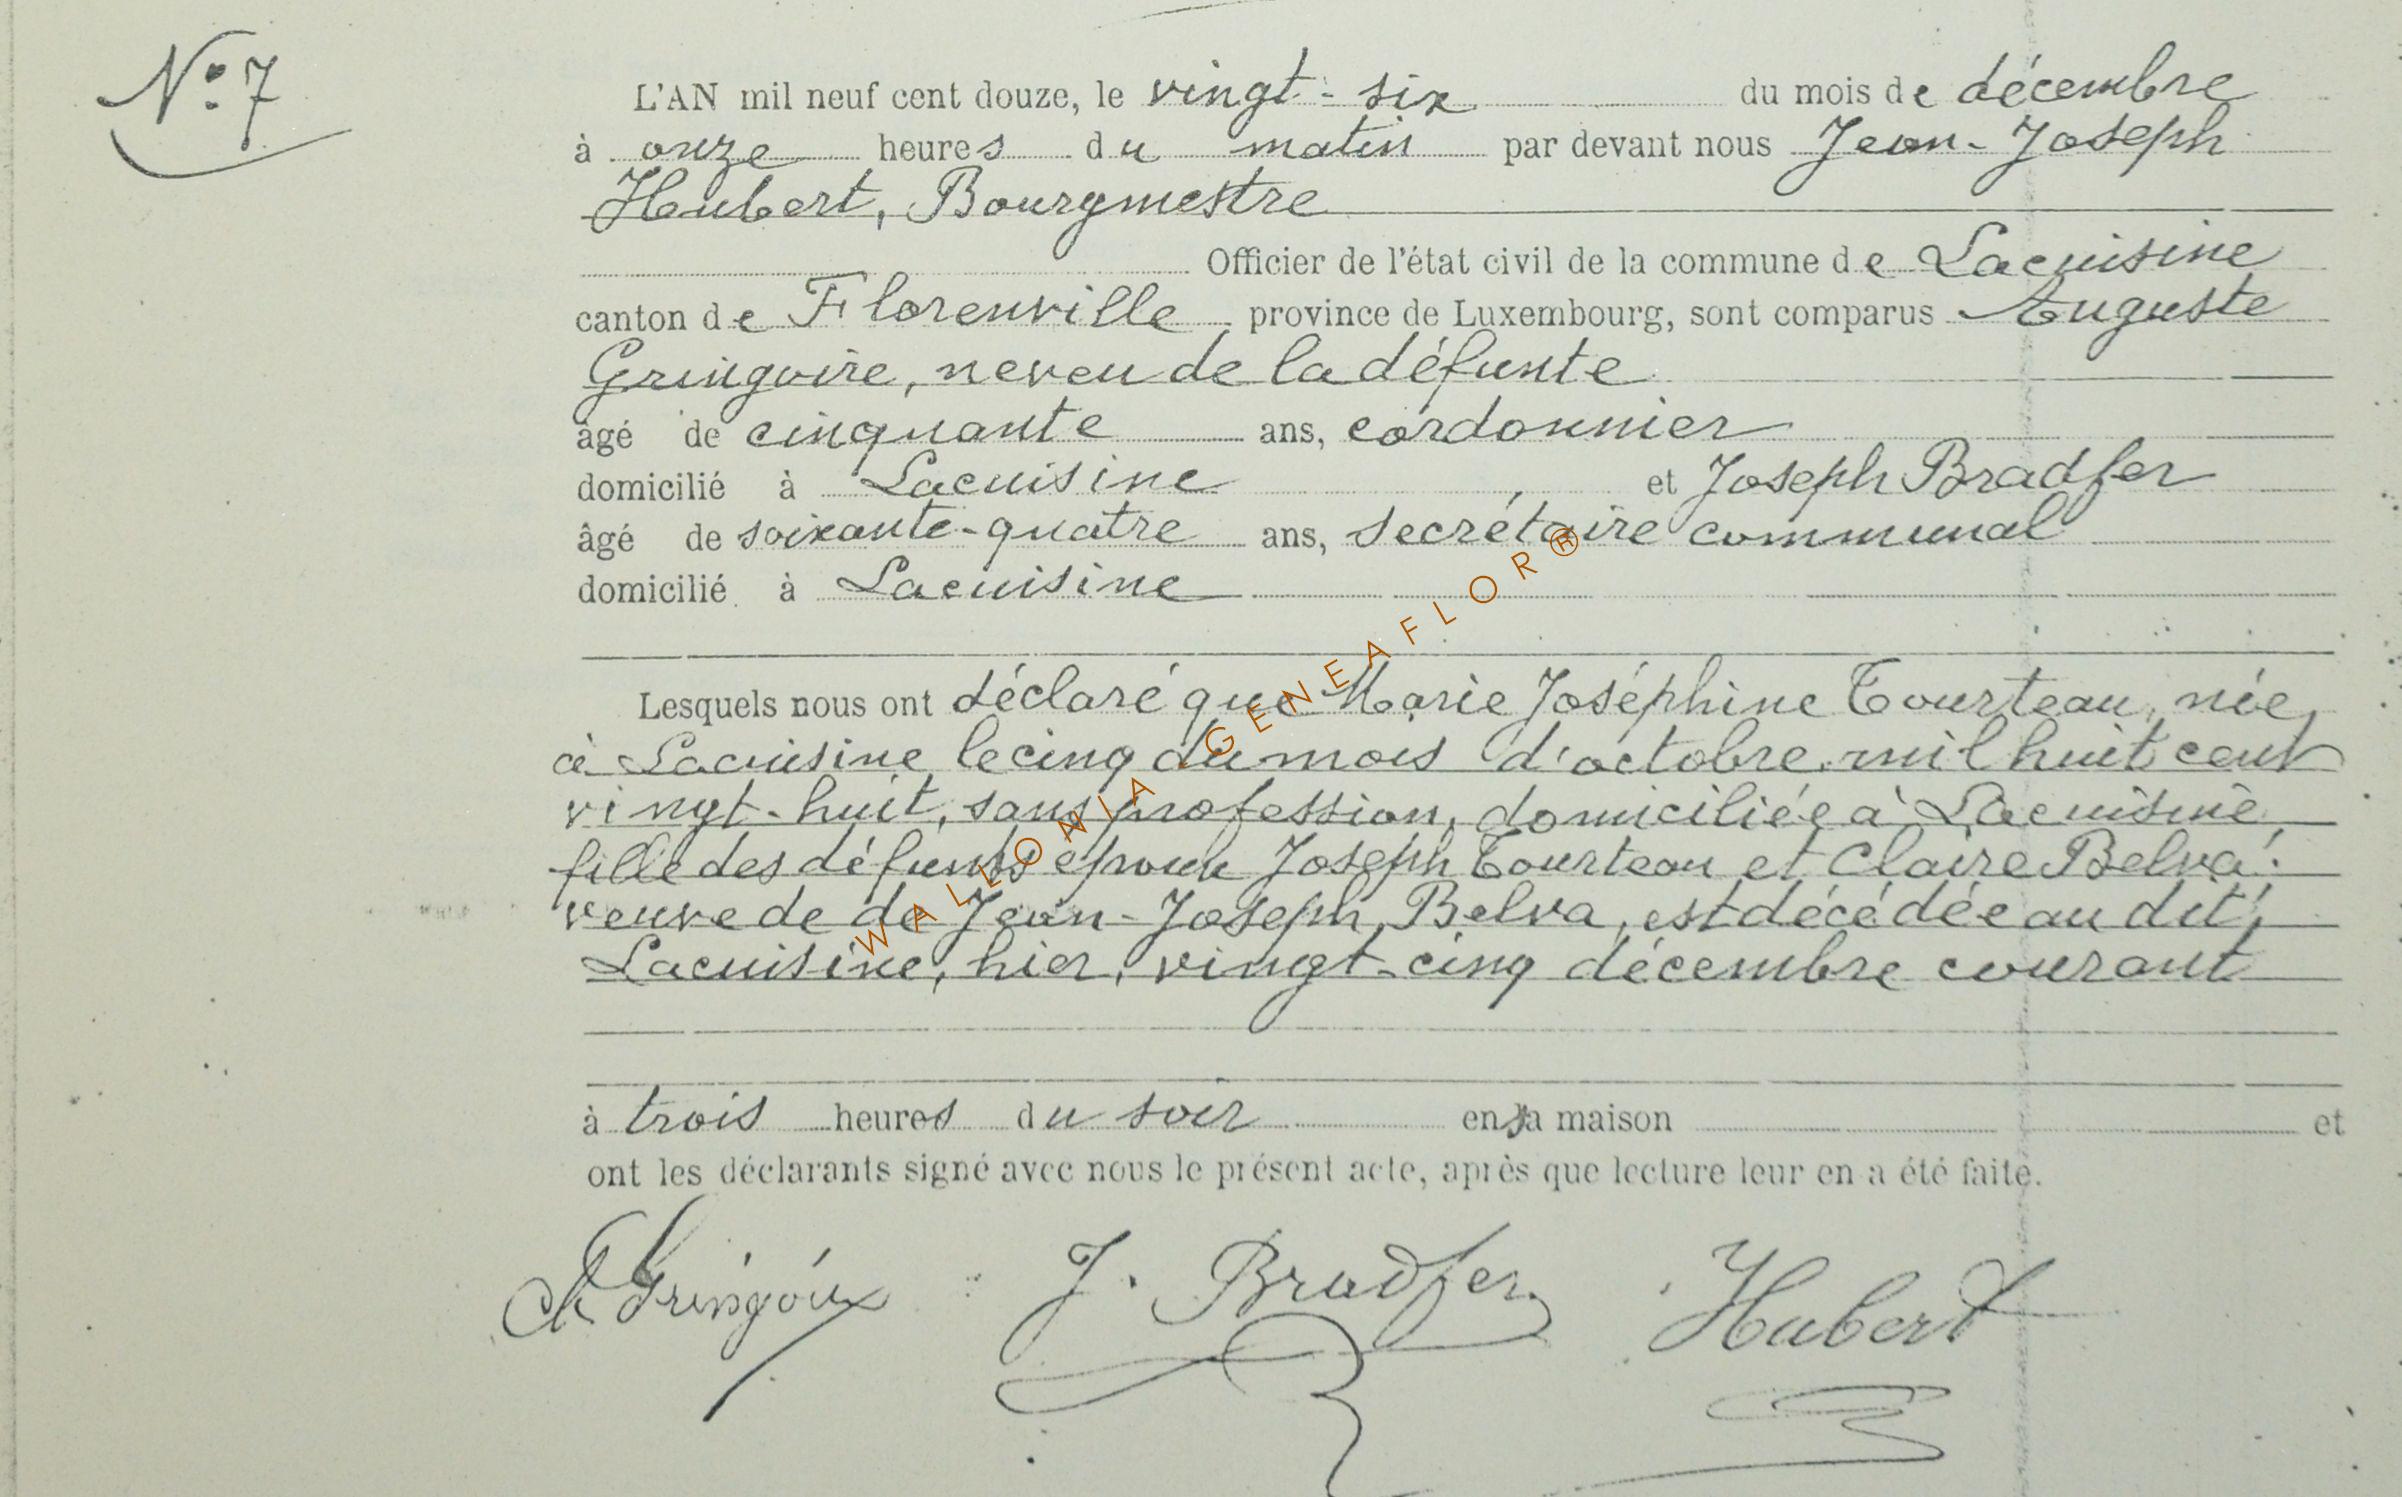 N° 7
L'AN mil neuf cent douze, le vingt-six du mois de décembre
à onze heures du matin par devant nous Jean-Joseph
Hubert, Bourgmestre
Officier de l'état civil de la commune de Lacuisine
canton de Florenville, province de Luxembourg, sont comparus Auguste
Gringoire, neveu de la défunte
âgé de cinquante ans, cordonnier
domicilié à Lacuisine et Joseph Bradfer
âgé de soixante-quatre ans, secrétaire communal
domicilié à Lacuisine
Lesquels nous ont déclaré que Marie Joséphine Tourteau, née
à Lacuisine le cinq du mois d'octobre mil huit cent
vingt-huit, sans profession, domiciliée à Lacuisine,
fille des défunts époux Joseph Tourteau et Claire Belva:
veuve de de Jean-Joseph Belva, est décédée au dit
Lacuisine, hier, vingt-cinq décembre courant
à trois heures du soir en sa maison et
ont les déclarants signé avec nous le présent acte, après que lecture leur en a été faite.
A Gringoire J. Bradfer Hubert
WALLONIA - GENEAFLOR®